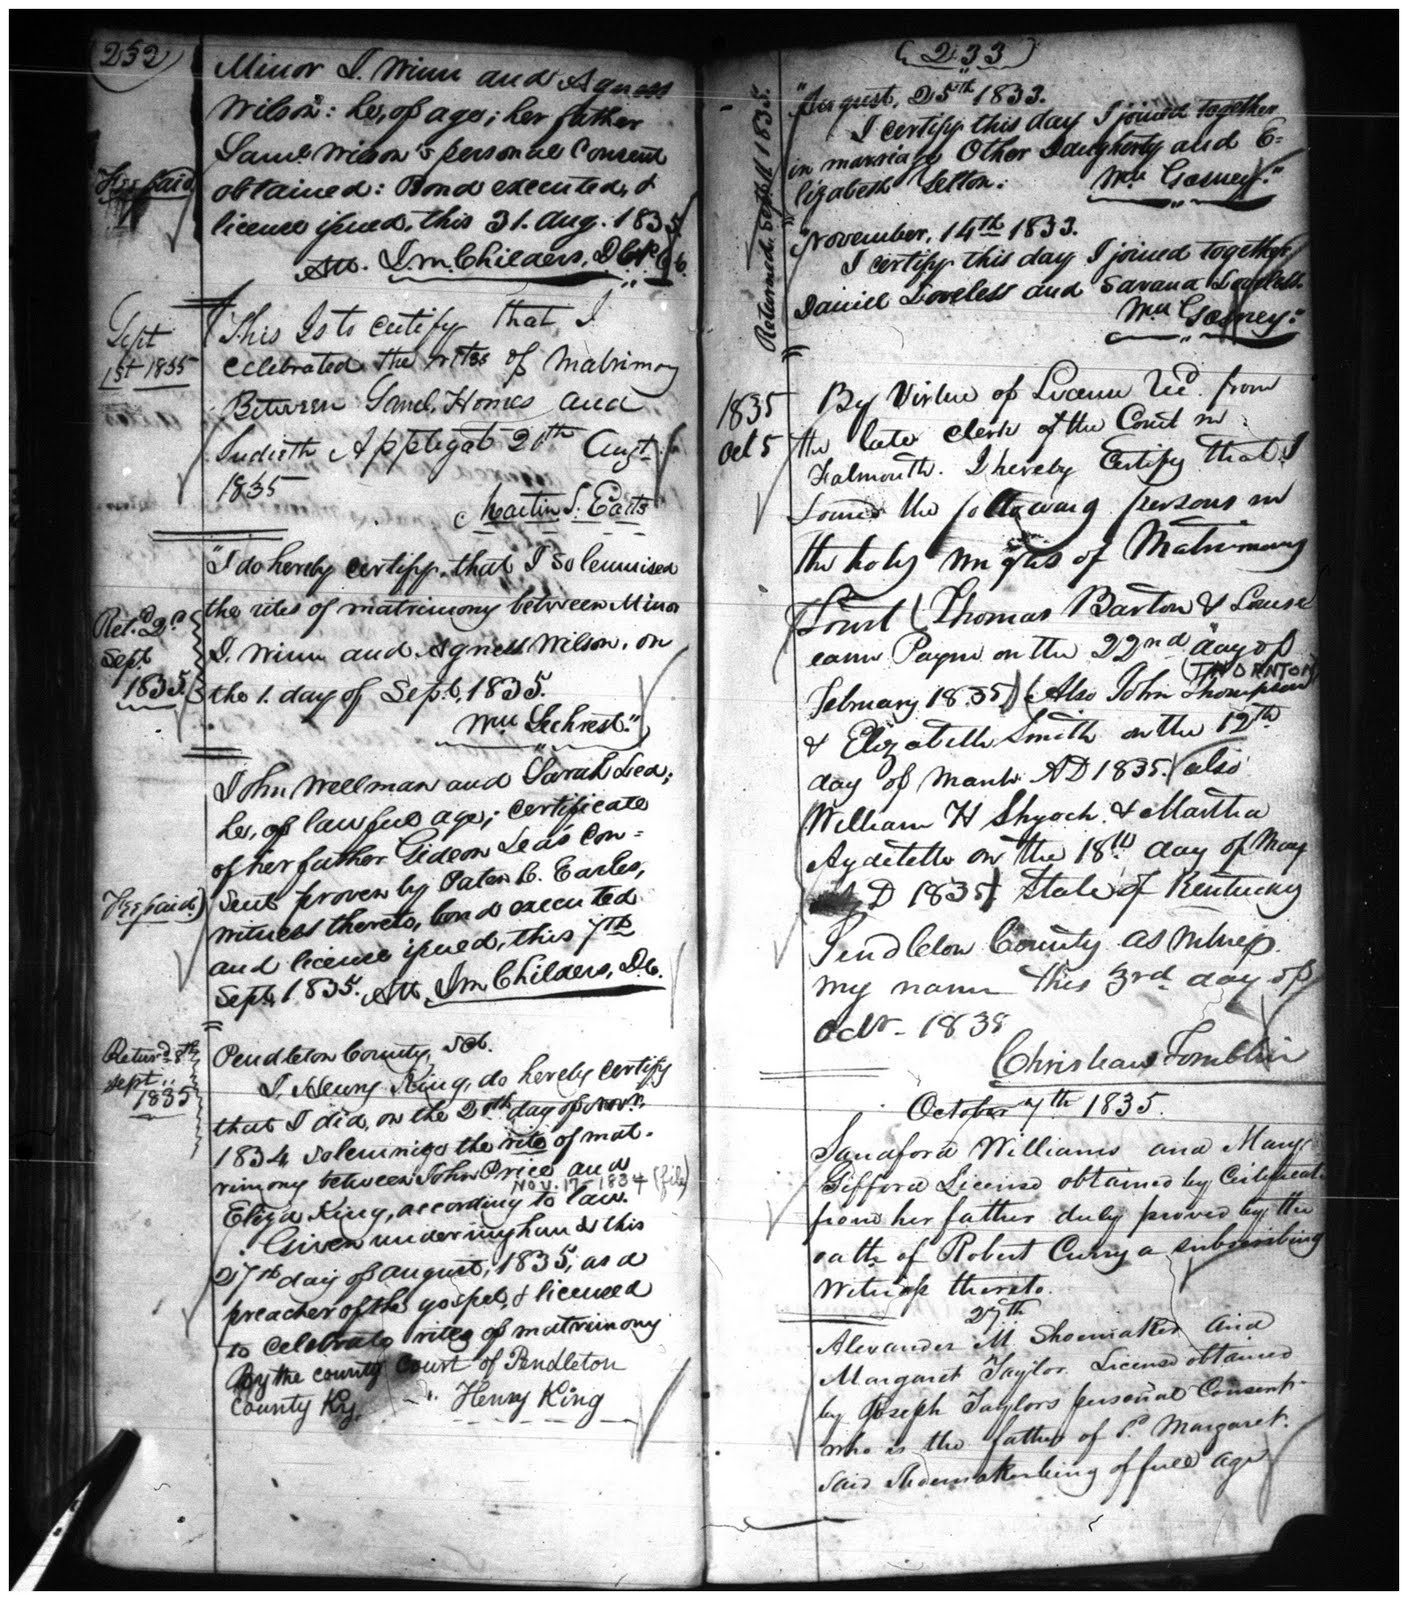 232
Minor I. Winn and Agness
Wilson: he, of age; her father
Saml. Wilson's personal Consent
obtained: Bond executed, &
Fee paid
licence issued, this 31. Aug. 1835
Att. I.m. Childers, D.C.
This Is to certify that I
Sept
1st 1835
celebrated the rites of Matrimony
Between Saml. Homes and
Judieth Applegat 20th Augt.
1835
Martin L. Eatts
"I do hereby certify, that I solemnised
the rites of matrimony between Minor
Ret.d 2d
Sept
1835.
I. Winn and Agness Wilson, on
the 1. day of Sept. 1835.
Wm. Sechrest."
John Wellman and Sarah Lea;
he, of lawful age; certificate
of her father Gideon Lea's con=
Fee paid.
sent proven by Paten C. Earles,
witness thereto, bond executed
and licence issued, this 7th
Sept. 1835. Att. I.m. Childers, D.C.
Return'd 8th
Sept.
1835
Pendleton County, Sct.
I, Henry King, do hereby certify
that I did, on the 20th day of Novr.
1834, solemnize the rite of mat-
rimony between John Price and
Nov. 17-1834 (file)
Eliza King, according to law.
Given under my hand this
27th day of august, 1835, as a
preacher of the gospel, & licenced
to celebrate rites of matrimony
By the county Court of Pendleton
County Ky. Henry King
(233)
Returned, Sept. 11 1835.
"August, 25th 1833.
I certify this day I joined together
in marriage Other Daugherty and E=
lizabeth Lelton. Wm. Gosney."
"November, 14th 1833.
I certify this day I joined together
Daniel Loveless and Savana Loveless.
Wm Gosney."
1835
Oct 5
By Virtue of from
the late clerk of the Court in
Falmouth. I hereby Certify that I
Joined the following persons in
the holy of Matrimony
(Thomas Barton &
Payne on the 22nd day of
(THORNTON)
February 1835) (Also John Thompson
& Elizabeth Smith on the 12th
day of March AD 1835. (also
William H Shyock & Martha
Aydelett on the 18th day of May
AD 1835) State of Kentucky
Pendleton County as witness
my name this 3rd day of
Octr. 1835
Christian Tomblin
October 7th 1835.
Sandford Williams and Mary
Gifford License obtained by Certificate
from her father duly proved by the
oath of Robert Curry a subscribing
Witness thereto.
27th
Alexander M Shoemaker and
Margaret Taylor License obtained
by Joseph Taylors personal Consent
who is the father of sd. Margaret.
Said Shoemaker being of full age